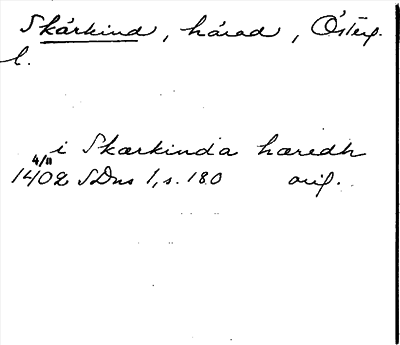 Skärkind, härad, Österg.
l.
i Skærkinda hæredh
4/11
1402 SDns 1, s. 180 orig.